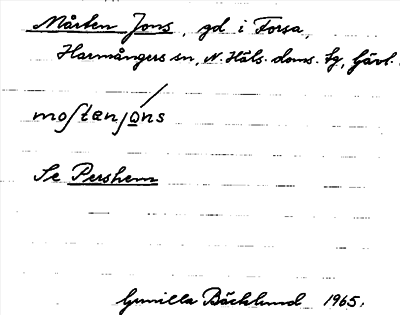 Mårten Jons, gd i Forsa,
Harmångers sn, N. Häls. doms. tg, Gävl.
moſtanſo̲ns
Se Pershem
Gunilla Bäcklund 1965.